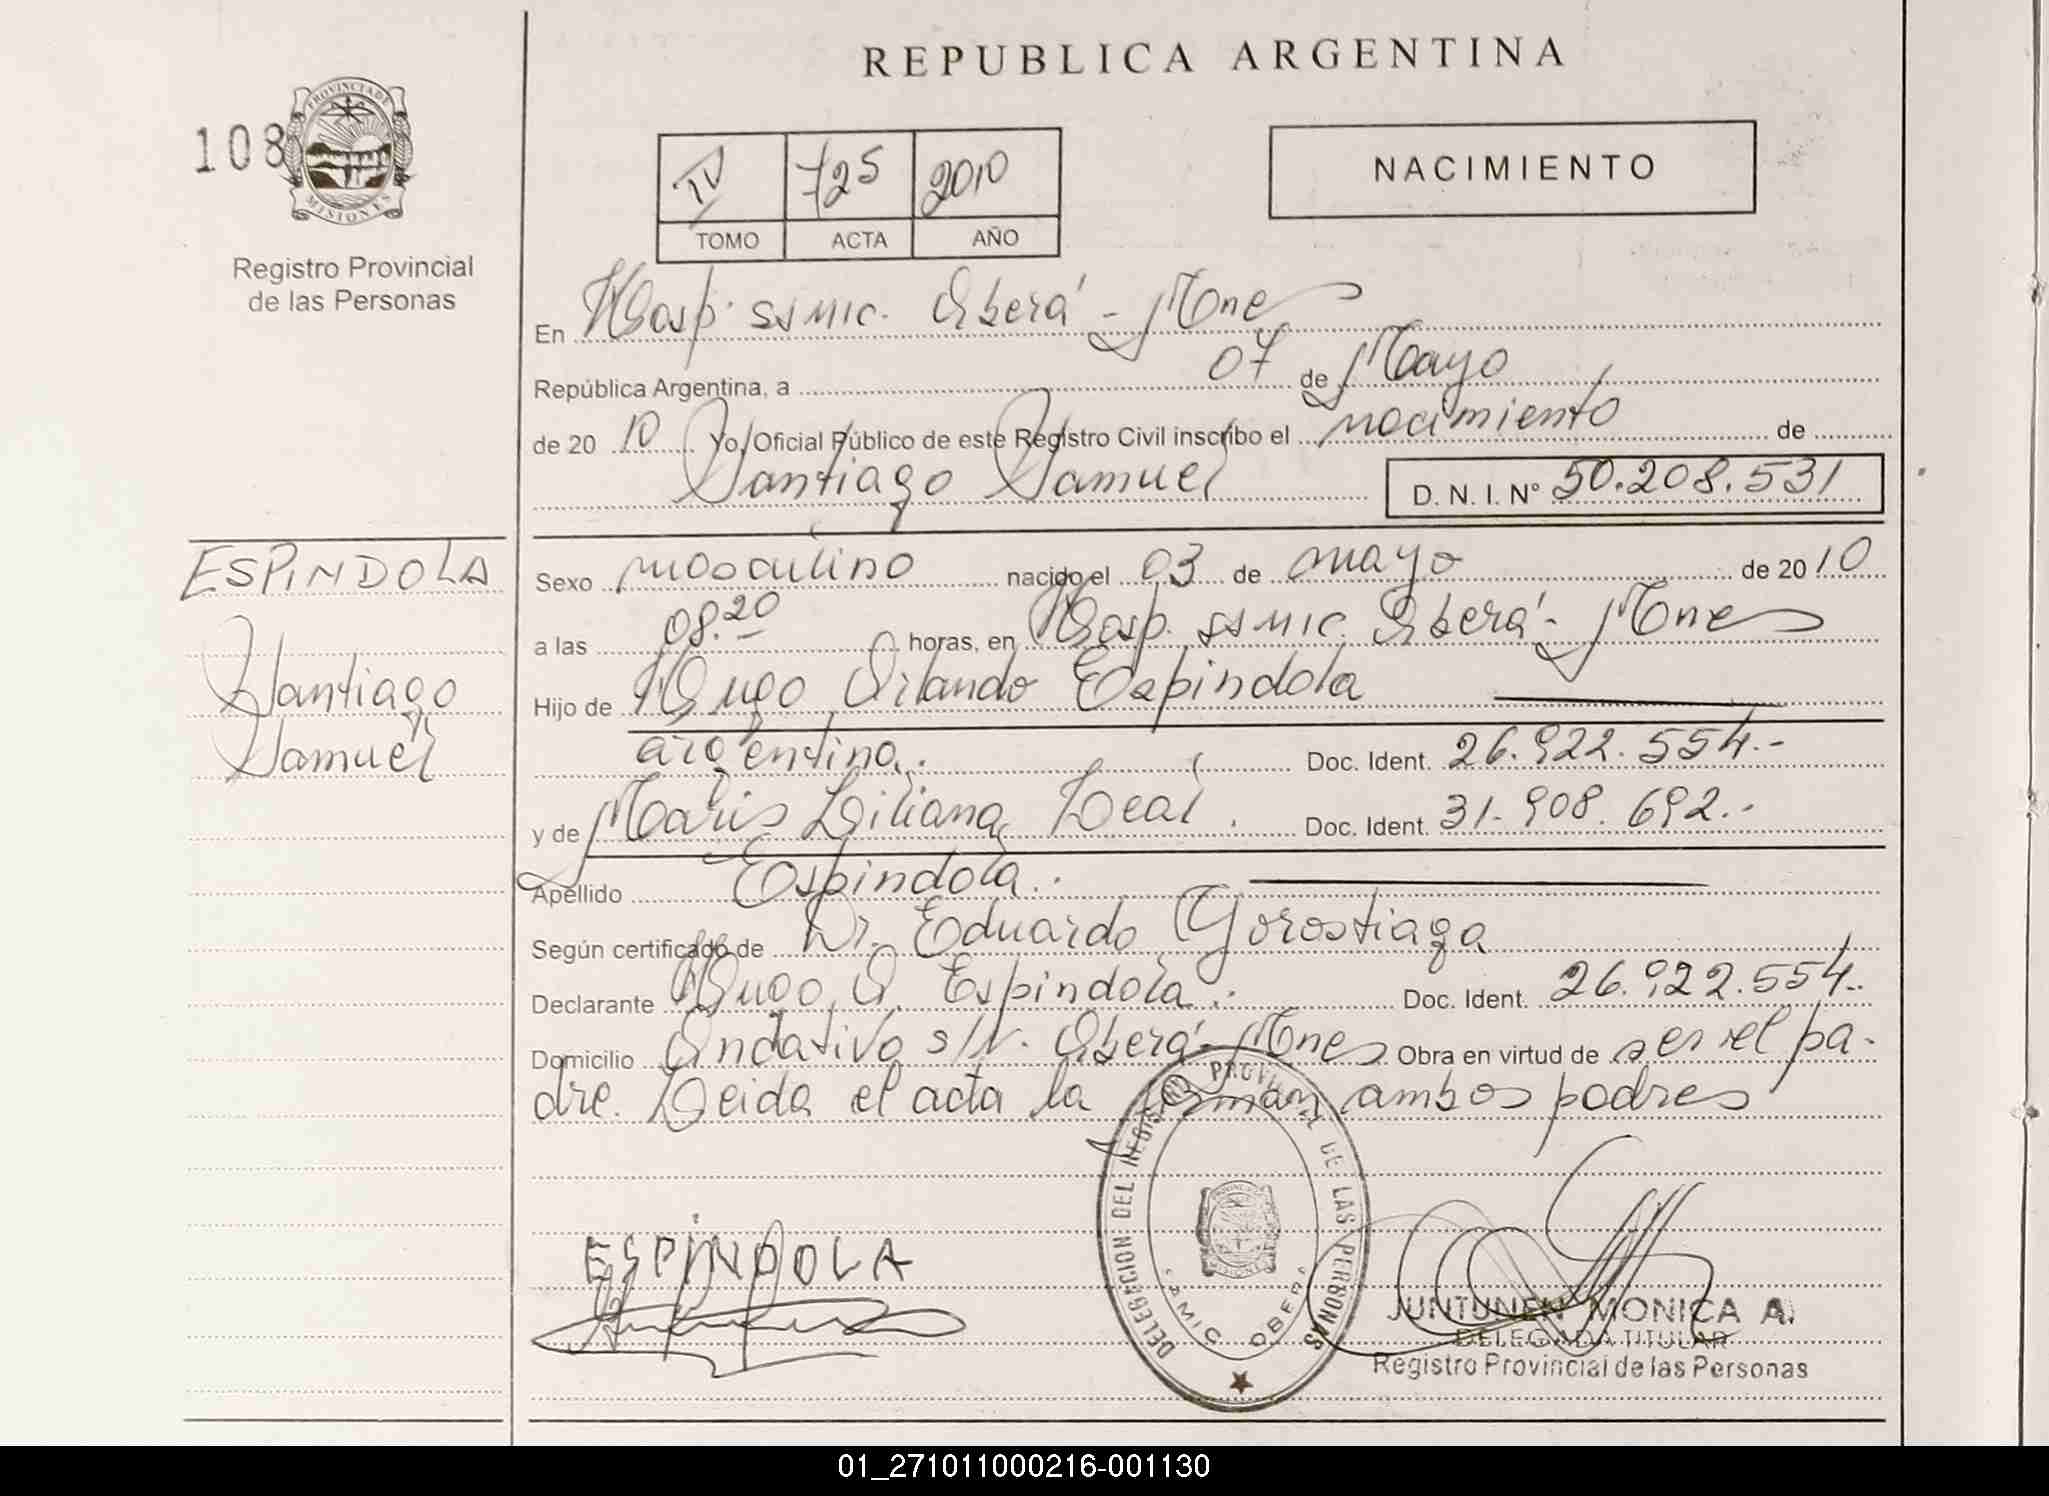 REPUBLICA ARGENTINA
108
PROVINCIA DE
MISIONES
Registro Provincial
de las Personas
IV 725 2010
TOMO ACTA AÑO
NACIMIENTO
En Hosp. SSMIC. Oberá - Mnes
República Argentina, a 07 de Mayo
de 20 10 Yo, Oficial Público de este Registro Civil inscribo el nacimiento de
Santiago Samuel D. N. I. Nº 50.208.531
ESPINDOLA
Santiago
Samuel
Sexo masculino nacido el 03 de mayo de 20 10
a las 08.20 horas, en Hosp. SSMIC. Oberá - Mnes
Hijo de Hugo Orlando Espindola
argentino. Doc. Ident. 26.922.554.-
y de Maris Liliana Leal. Doc. Ident. 31.908.692.-
Apellido Espindola.
Según certificado de Dr. Eduardo Gorostiaga
Declarante Hugo O. Espindola. Doc. Ident. 26.922.554.
Domicilio s/N. Oberá - Mnes Obra en virtud de ser el pa-
dre. Leida el acta la firman ambos padres
DELEGACION DEL REGISTRO PROVINCIAL DE LAS PERSONAS
SAMIC OBERA
ESPINDOLA
JUNTUNEN MONICA A.
DELEGADA TITULAR
Registro Provincial de las Personas
01_271011000216-001130